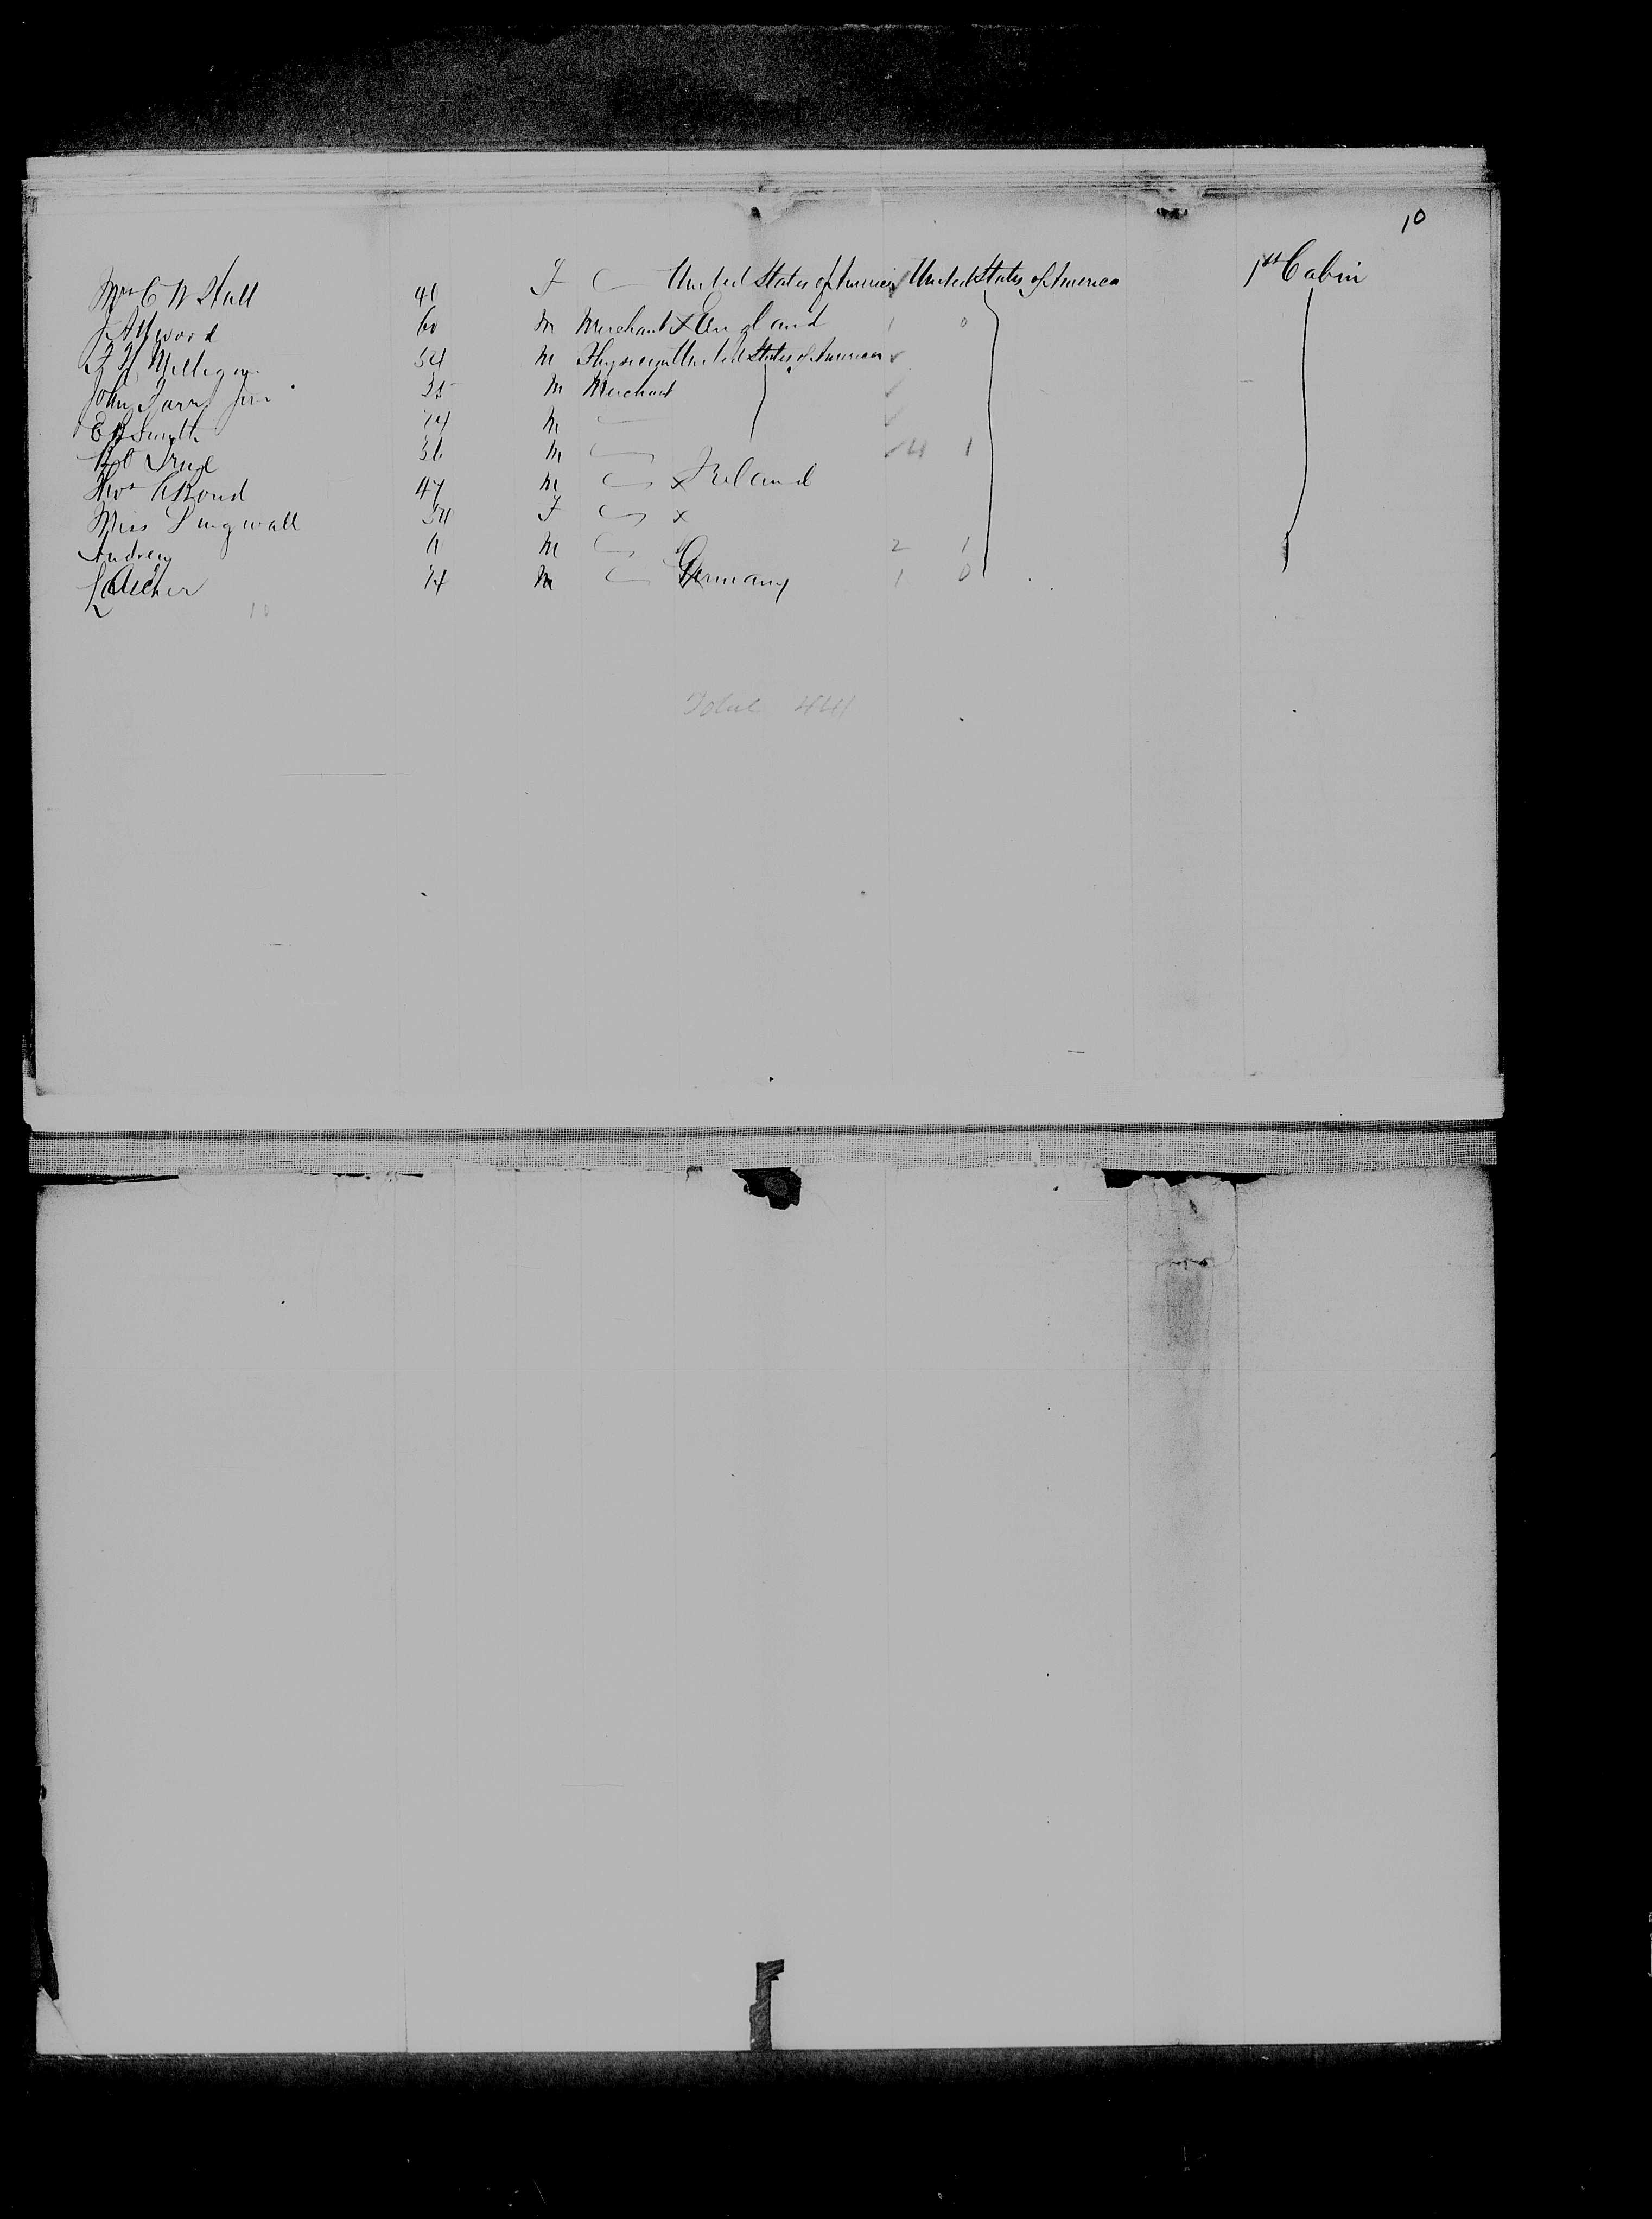 10
Mrs C W Hall 40 F United States of America United States of America 1st Cabin
J Attwood 60 M Merchant x England 1 0
F H Milligan 54 M Physician United States of America
John Farr Jnr 35 M Merchant
E Smith 24 M
True 36 M 4 1
Thos Bond 47 M x Ireland
Miss Dingwall 34 F x
Andrew 11 M 2 1
Ascher 24 M Germany 1 0
10
Total 441